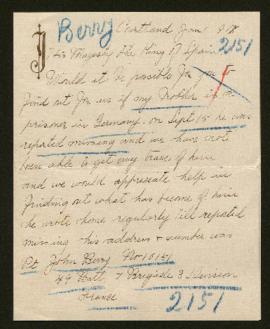 Berry
Courtland Jan 9 18
His Magesty the King of Spain
2151
Would it be possible for you
find out for us if my Brother is a
prisoner in Germany. on Sept 15 he was
reported missing and we have not
been able to get any trace of him
and we would appresate help in
finding out what has become of him
he wrote home regularly till reported
missing his address & number was
Pt John Berry No
49 Batt 7 Brigade 3 Division
France
2151